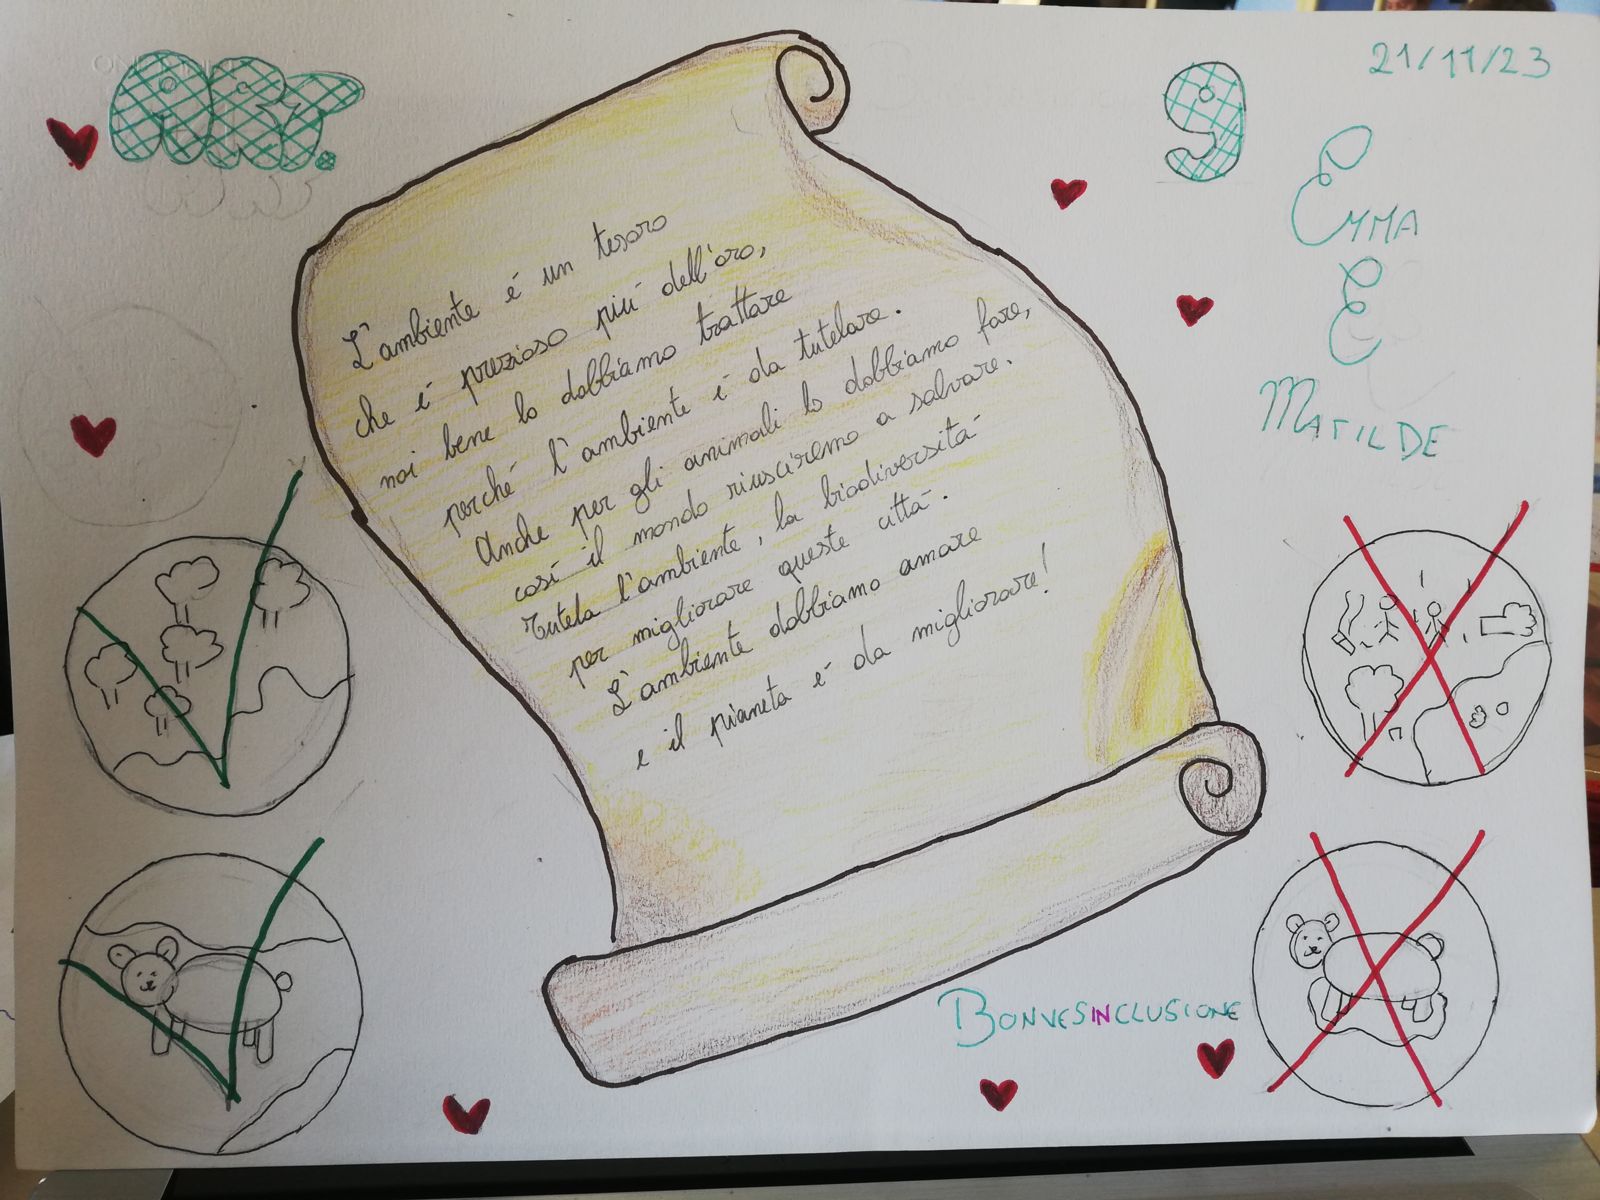 ART.
9
21/11/23
EMMA
E
MATILDE
L'ambiente é un tesoro
che é prezioso piú dell'oro,
noi bene lo dobbiamo trattare
perché l'ambiente é da tutelare.
Anche per gli animali lo dobbiamo fare,
cosí il mondo riusciremo a salvare.
Tutela l'ambiente, la biodiversitá
per migliorare queste cittá.
L'ambiente dobbiamo amare
e il pianeta é da migliorare!
BONVESINCLUSIONE